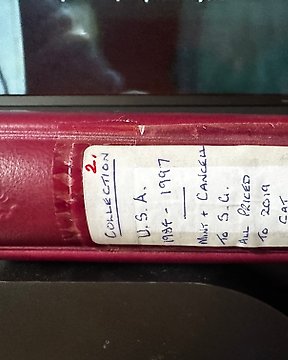 2.
COLLECTION
U.S.A.
1984 - 1997
MINT + CANCELL
TO S.G.
ALL PRICED
TO 2019
CAT